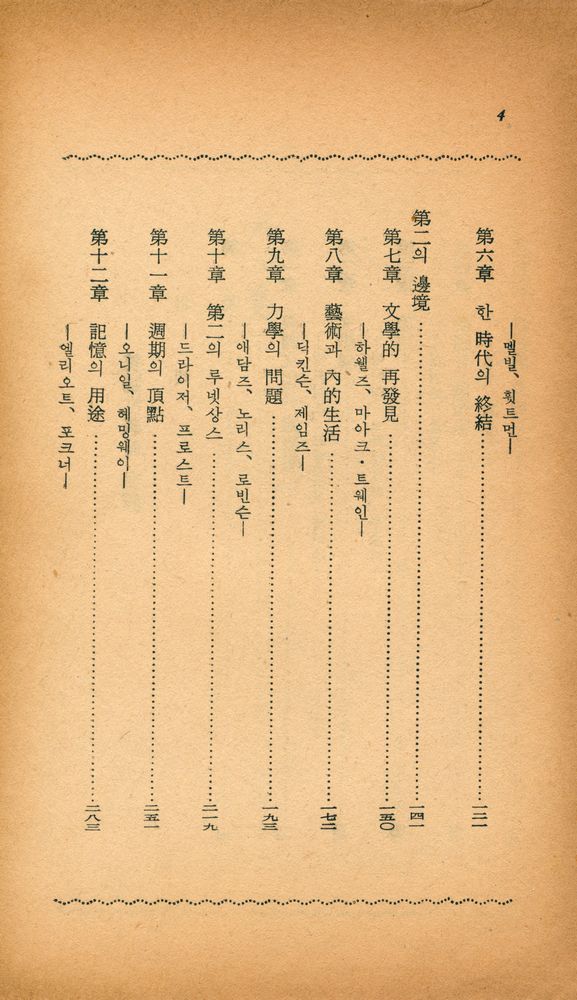 4
第六章 한 時代의 終結 一二一
―멜빌、휫트먼―
第二의 邊境 一四一
第七章 文學的 再發見 一五〇
―하웰즈、마아크・트웨인―
第八章 藝術과 內的生活 一七二
―딕킨슨、제임즈―
第九章 力學의 問題 一九三
―애담즈、노리스、로빈슨―
第十章 第二의 루넷상스 二一九
―드라이저、프로스트―
第十一章 週期의 頂點 二五一
―오니일、헤밍웨이―
第十二章 記憶의 用途 二八三
―엘리오트、포크너―